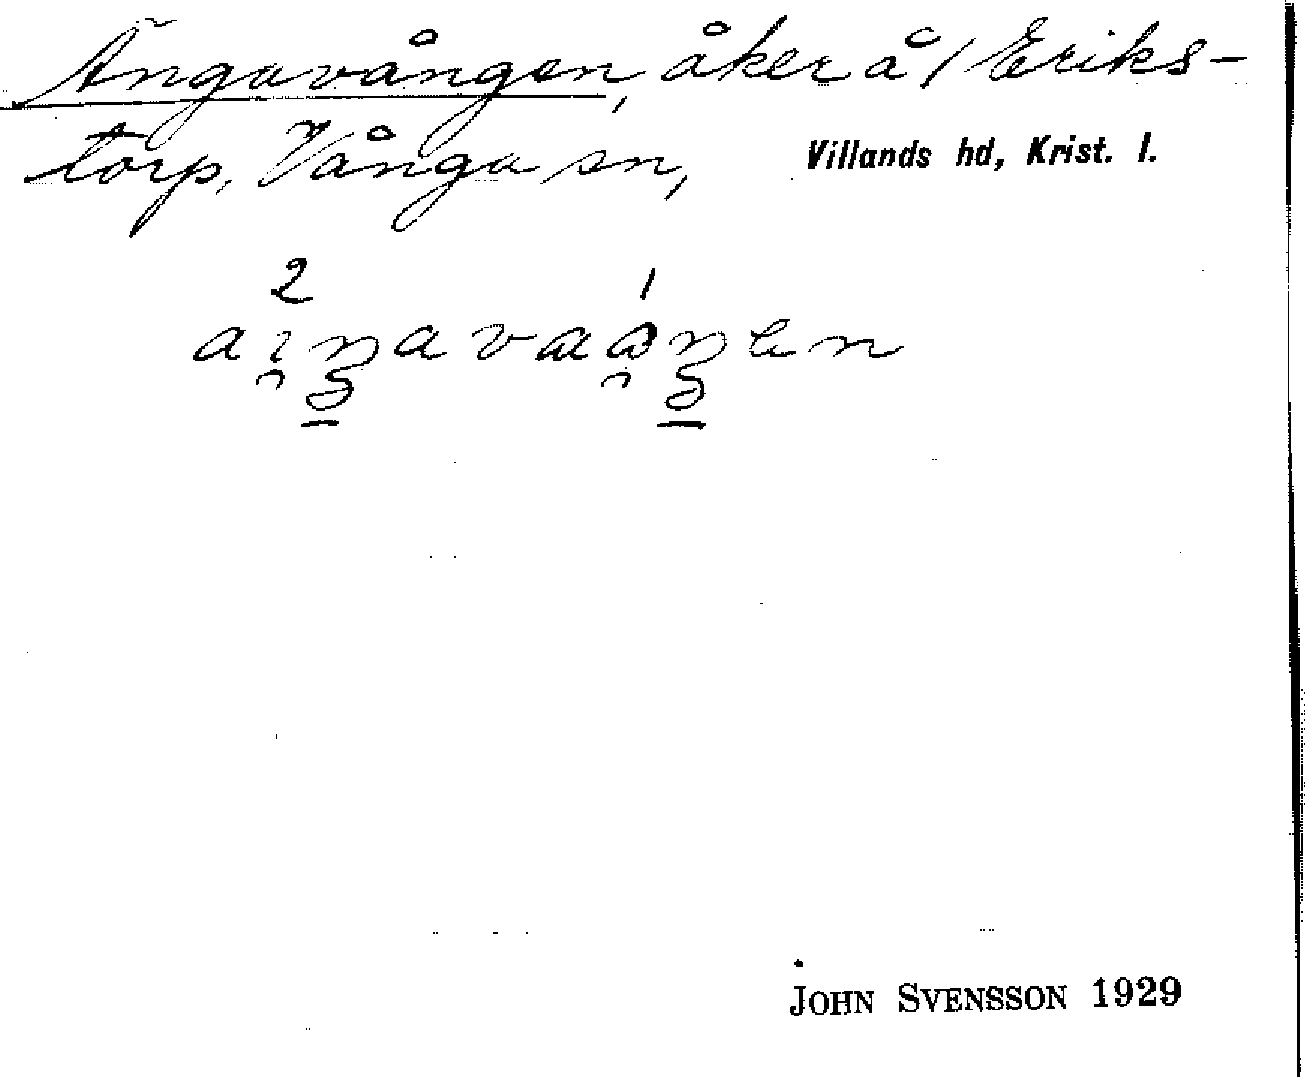 Ängavången, åker å / Eriks-
torp, Vånga sn, Villands hd, Krist. l.
2 1
JOHN SVENSSON 1929